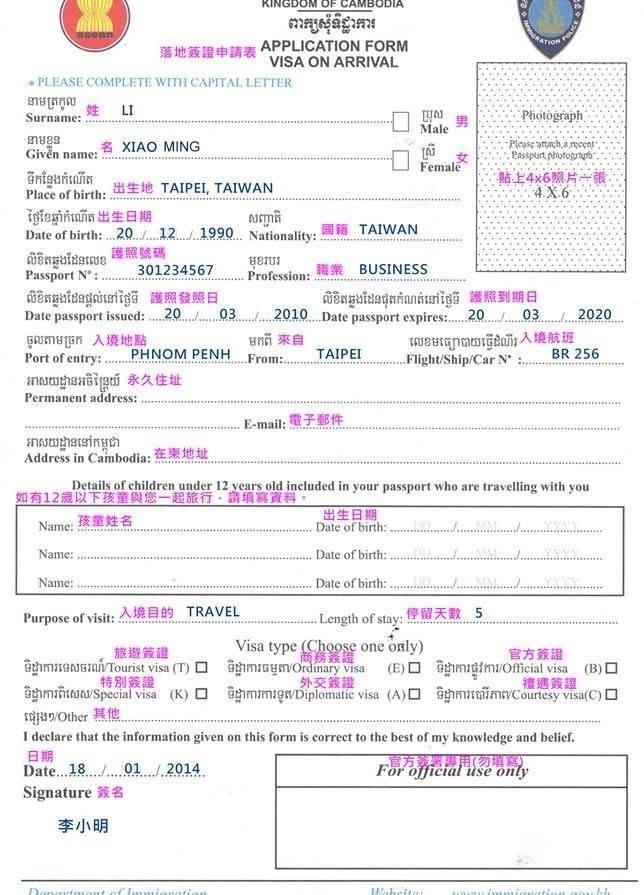 asean
KINGDOM OF CAMBODIA
ពាក្យសុំទិដ្ឋាការ
落地簽證申請表 APPLICATION FORM
VISA ON ARRIVAL
IMMIGRATION POLICE
* PLEASE COMPLETE WITH CAPITAL LETTER
នាមត្រកូល
Surname: 姓 LI
ប្រុស
Male 男
នាមខ្លួន
Given name: 名 XIAO MING
ស្រី
Female 女
Photograph
Please attach a recent
Passport photograph
貼上4x6照片一張
4 X 6
ទីកន្លែងកំណើត
Place of birth: 出生地 TAIPEI, TAIWAN
ថ្ងៃខែឆ្នាំកំណើត 出生日期 សញ្ជាតិ
Date of birth: 20 / 12 / 1990 Nationality: 國籍 TAIWAN
លិខិតឆ្លងដែនលេខ 護照號碼 មុខរបរ
Passport Nº : 301234567 Profession: 職業 BUSINESS
លិខិតឆ្លងដែនផ្តល់នៅថ្ងៃទី 護照發照日 លិខិតឆ្លងដែនផុតកំណត់នៅថ្ងៃទី 護照到期日
Date passport issued: 20 / 03 / 2010 Date passport expires: 20 / 03 / 2020
ចូលតាមច្រក 入境地點 មកពី 來自 លេខមធ្យោបាយធ្វើដំណើរ 入境航班
Port of entry: PHNOM PENH From: TAIPEI Flight/Ship/Car Nº : BR 256
អាសយដ្ឋានអចិន្ត្រៃយ៍ 永久住址
Permanent address:
E-mail: 電子郵件
អាសយដ្ឋាននៅកម្ពុជា
Address in Cambodia: 在柬地址
Details of children under 12 years old included in your passport who are travelling with you
如有12歲以下孩童與您一起旅行，請填寫資料。
Name: 孩童姓名 出生日期 Date of birth: DD / MM / YYYY
Name: Date of birth: DD / MM / YYYY
Name: Date of birth: DD / MM / YYYY
Purpose of visit: 入境目的 TRAVEL Length of stay: 停留天數 5
Visa type (Choose one only)
旅遊簽證 商務簽證 官方簽證
ទិដ្ឋាការទេសចរណ៍/Tourist visa (T) ទិដ្ឋាការធម្មតា/Ordinary visa (E) ទិដ្ឋាការផ្លូវការ/Official visa (B)
特別簽證 外交簽證 禮遇簽證
ទិដ្ឋាការពិសេស/Special visa (K) ទិដ្ឋាការការទូត/Diplomatic visa (A) ទិដ្ឋាការបោរីភាព/Courtesy visa(C)
ផ្សេងៗ/Other 其他
I declare that the information given on this form is correct to the best of my knowledge and belief.
日期
Date 18 / 01 / 2014
官方簽署專用(勿填寫)
For official use only
Signature 簽名
李小明
Department of Immigration Website: www.immigration.gov.kh